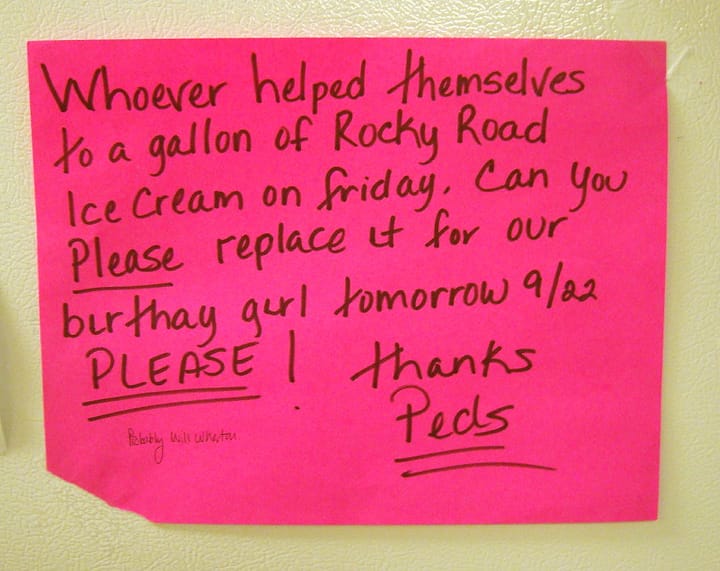 Whoever helped themselves
to a gallon of Rocky Road
Ice Cream on friday. Can you
Please replace it for our
birthay girl tomorrow 9/22
PLEASE! thanks
Peds
Probably Will Wheaton